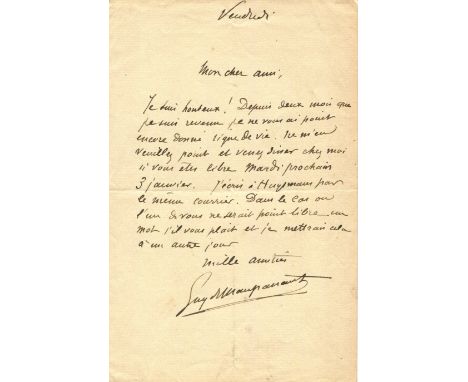 Vendredi
Mon cher ami,
Je suis honteux! Depuis deux mois que
je suis revenu je ne vous ai point
encore donné signe de vie. Ne m'en
veuillez point et venez dîner chez moi
si vous êtes libre Mardi prochain
3 janvier. J'écris à Huysmans par
le même courrier. Dans le cas où
l'un de vous ne serait point libre un
mot s'il vous plait et je mettrais cela
à un autre jour
mille amitiés
Guy de Maupassant